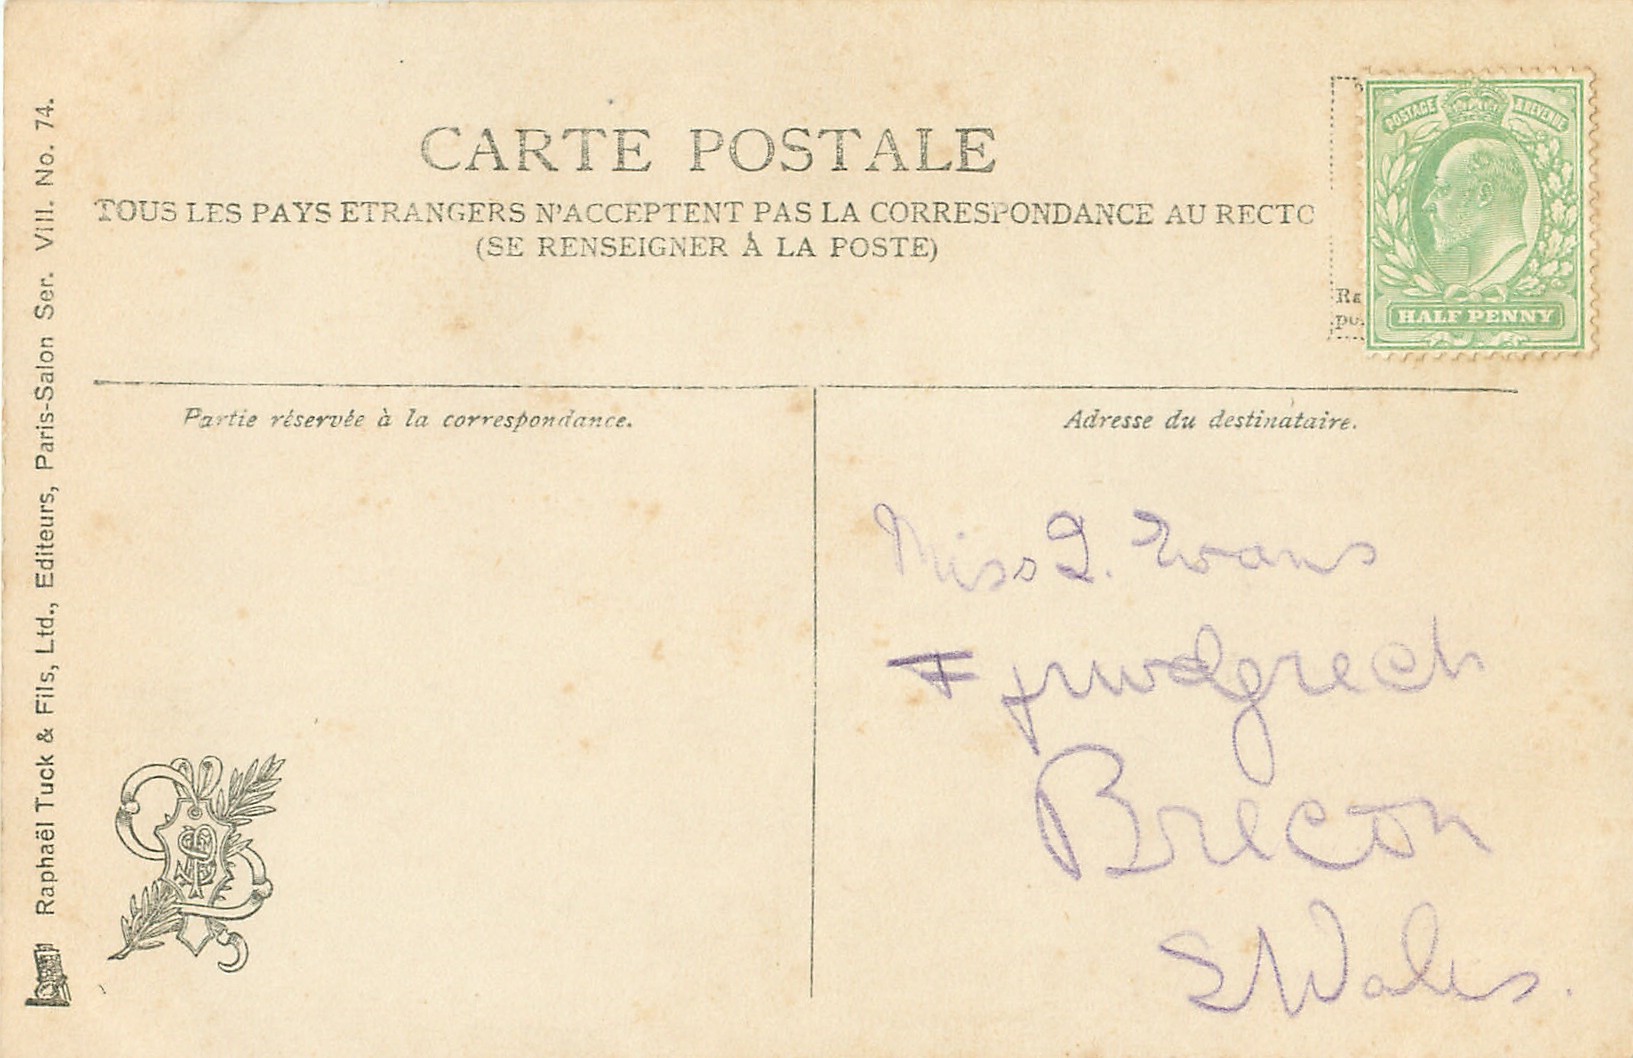 CARTE POSTALE
TOUS LES PAYS ETRANGERS N'ACCEPTENT PAS LA CORRESPONDANCE AU RECTO
(SE RENSEIGNER À LA POSTE)
POSTAGE & REVENUE
HALF PENNY
Ra
po
Partie réservée à la correspondance.
Adresse du destinataire.
Miss Evans
Brecon
S Wales.
Raphaël Tuck & Fils, Ltd., Editeurs, Paris-Salon Ser. VIII. No. 74.